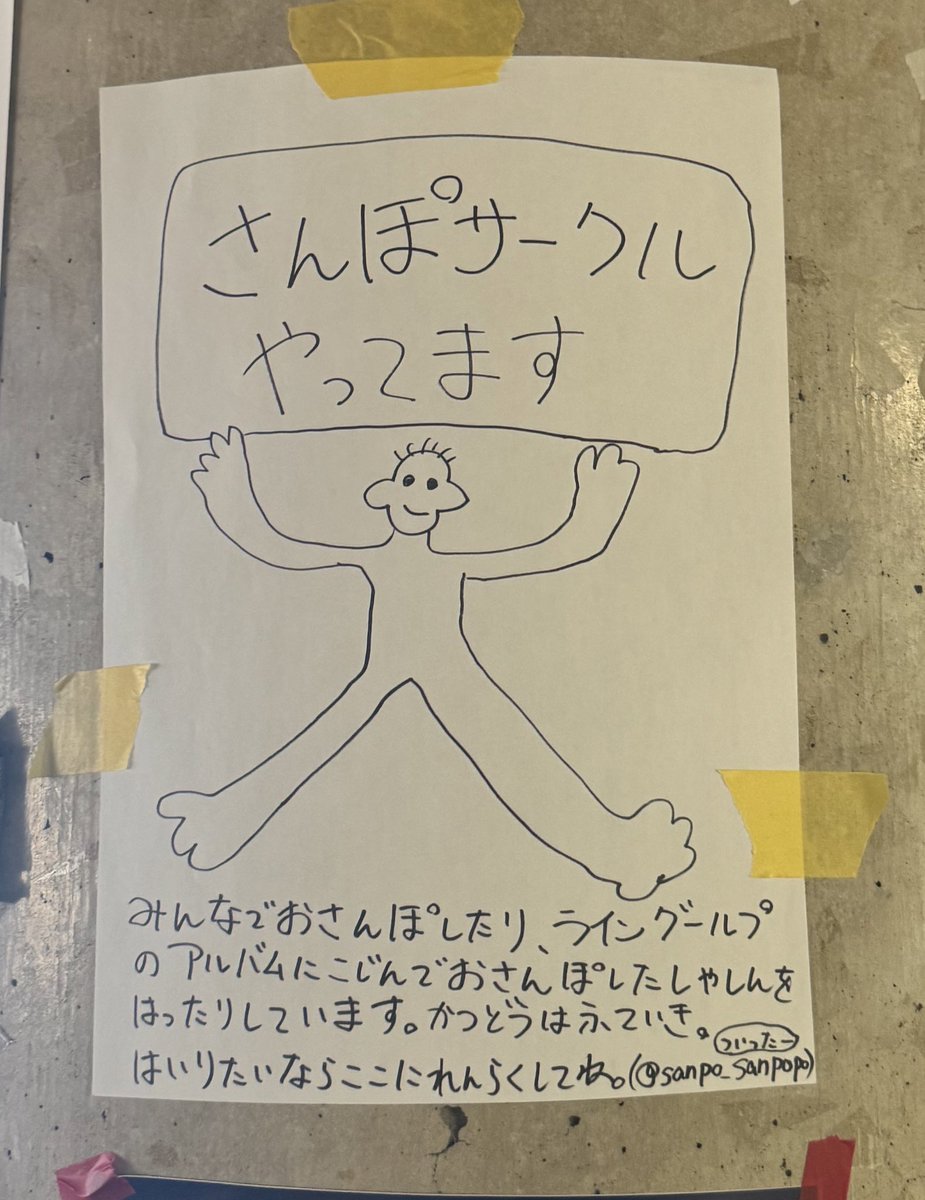 さんぽサークル
やってます
みんなでおさんぽしたり、ライングールプ
のアルバムにこじんでおさんぽしたしゃしんを
はったりしています。かつどうはふていき。
ついったー
はいりたいならここにれんらくしてね。(@sanpo_sanpopo)